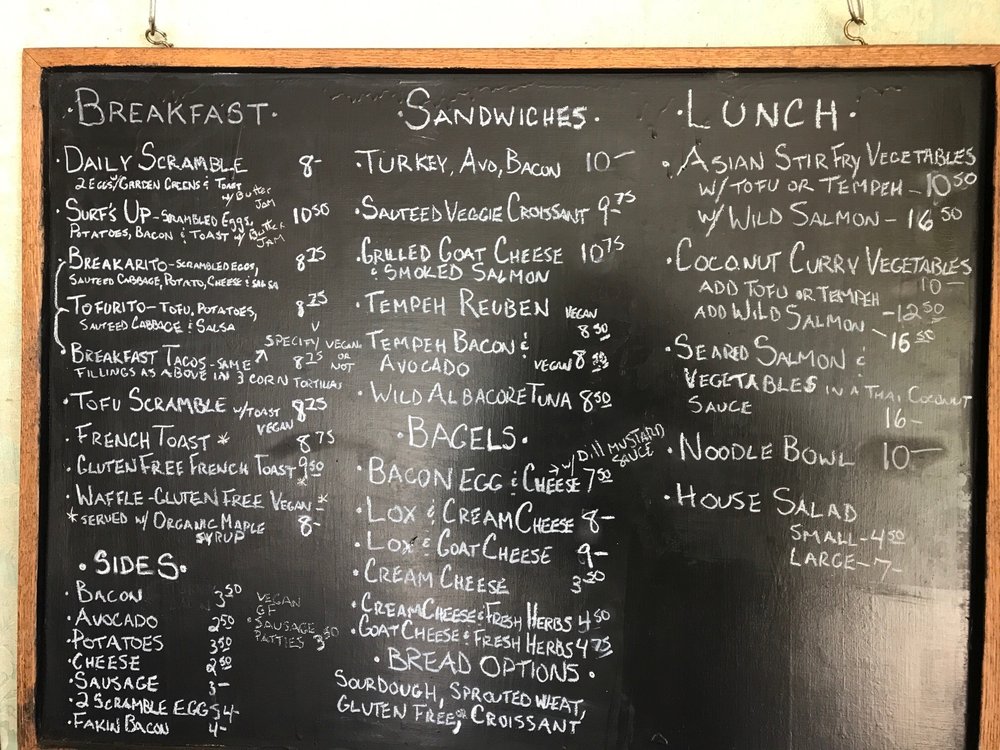 ·BREAKFAST·
·DAILY SCRAMBLE 8-
2 EGGS/GARDEN GREENS & TOAST
w/ Butter
JAM
·SURF'S UP-SCRAMBLED EGGS, 10 50
POTATOES, BACON & TOAST w/ Butter
JAM
·BREAKARITO-SCRAMBLED EGGS, 8 25
SAUTEED CABBAGE, POTATO, CHEESE & SALSA
·TOFURITO-TOFU, POTATOES, 8 25
SAUTEED CABBAGE & SALSA
SPECIFY VEGAN
OR
NOT
·BREAKFAST TACOS-SAME 8 25
FILLINGS AS ABOVE IN 3 CORN TORTILLAS
·TOFU SCRAMBLE w/TOAST 8 25
VEGAN
·FRENCH TOAST * 8 75
·GLUTEN FREE FRENCH TOAST 9 50
*
·WAFFLE-GLUTEN FREE VEGAN-*
*SERVED w/ ORGANIC MAPLE 8-
SYRUP
·SIDES·
·BACON 3 50
·AVOCADO 2 50
·POTATOES 3 50
·CHEESE 2 50
·SAUSAGE 3-
·2 SCRAMBLE EGGS 4-
·FAKIN BACON 4-
VEGAN
GF
·SAUSAGE
PATTIES 3 50
·SANDWICHES·
·TURKEY, AVO, BACON 10-
·SAUTEED VEGGIE CROISSANT 9 75
·GRILLED GOAT CHEESE 10 75
& SMOKED SALMON
·TEMPEH REUBEN VEGAN
8 50
·TEMPEH BACON &
AVOCADO VEGAN 8 50
·WILD ALBACORE TUNA 8 50
·BAGELS·
→ w/ Dill MUSTARD
SAUCE
·BACON EGG & CHEESE 7 50
·LOX & CREAM CHEESE 8-
·LOX & GOAT CHEESE 9-
·CREAM CHEESE 3 50
·CREAM CHEESE & FRESH HERBS 4 50
·GOAT CHEESE & FRESH HERBS 4 75
·BREAD OPTIONS·
SOURDOUGH, SPROUTED WHEAT,
GLUTEN FREE, OR CROISSANT
·LUNCH·
·ASIAN STIR FRY VEGETABLES
w/ TOFU OR TEMPEH - 10 50
w/ WILD SALMON - 16 50
·COCONUT CURRY VEGETABLES
10-
ADD TOFU OR TEMPEH -12 50
ADD WILD SALMON -16 50
·SEARED SALMON &
VEGETABLES IN A THAI COCONUT
SAUCE 16-
·NOODLE BOWL 10-
·HOUSE SALAD
SMALL-4 50
LARGE-7-